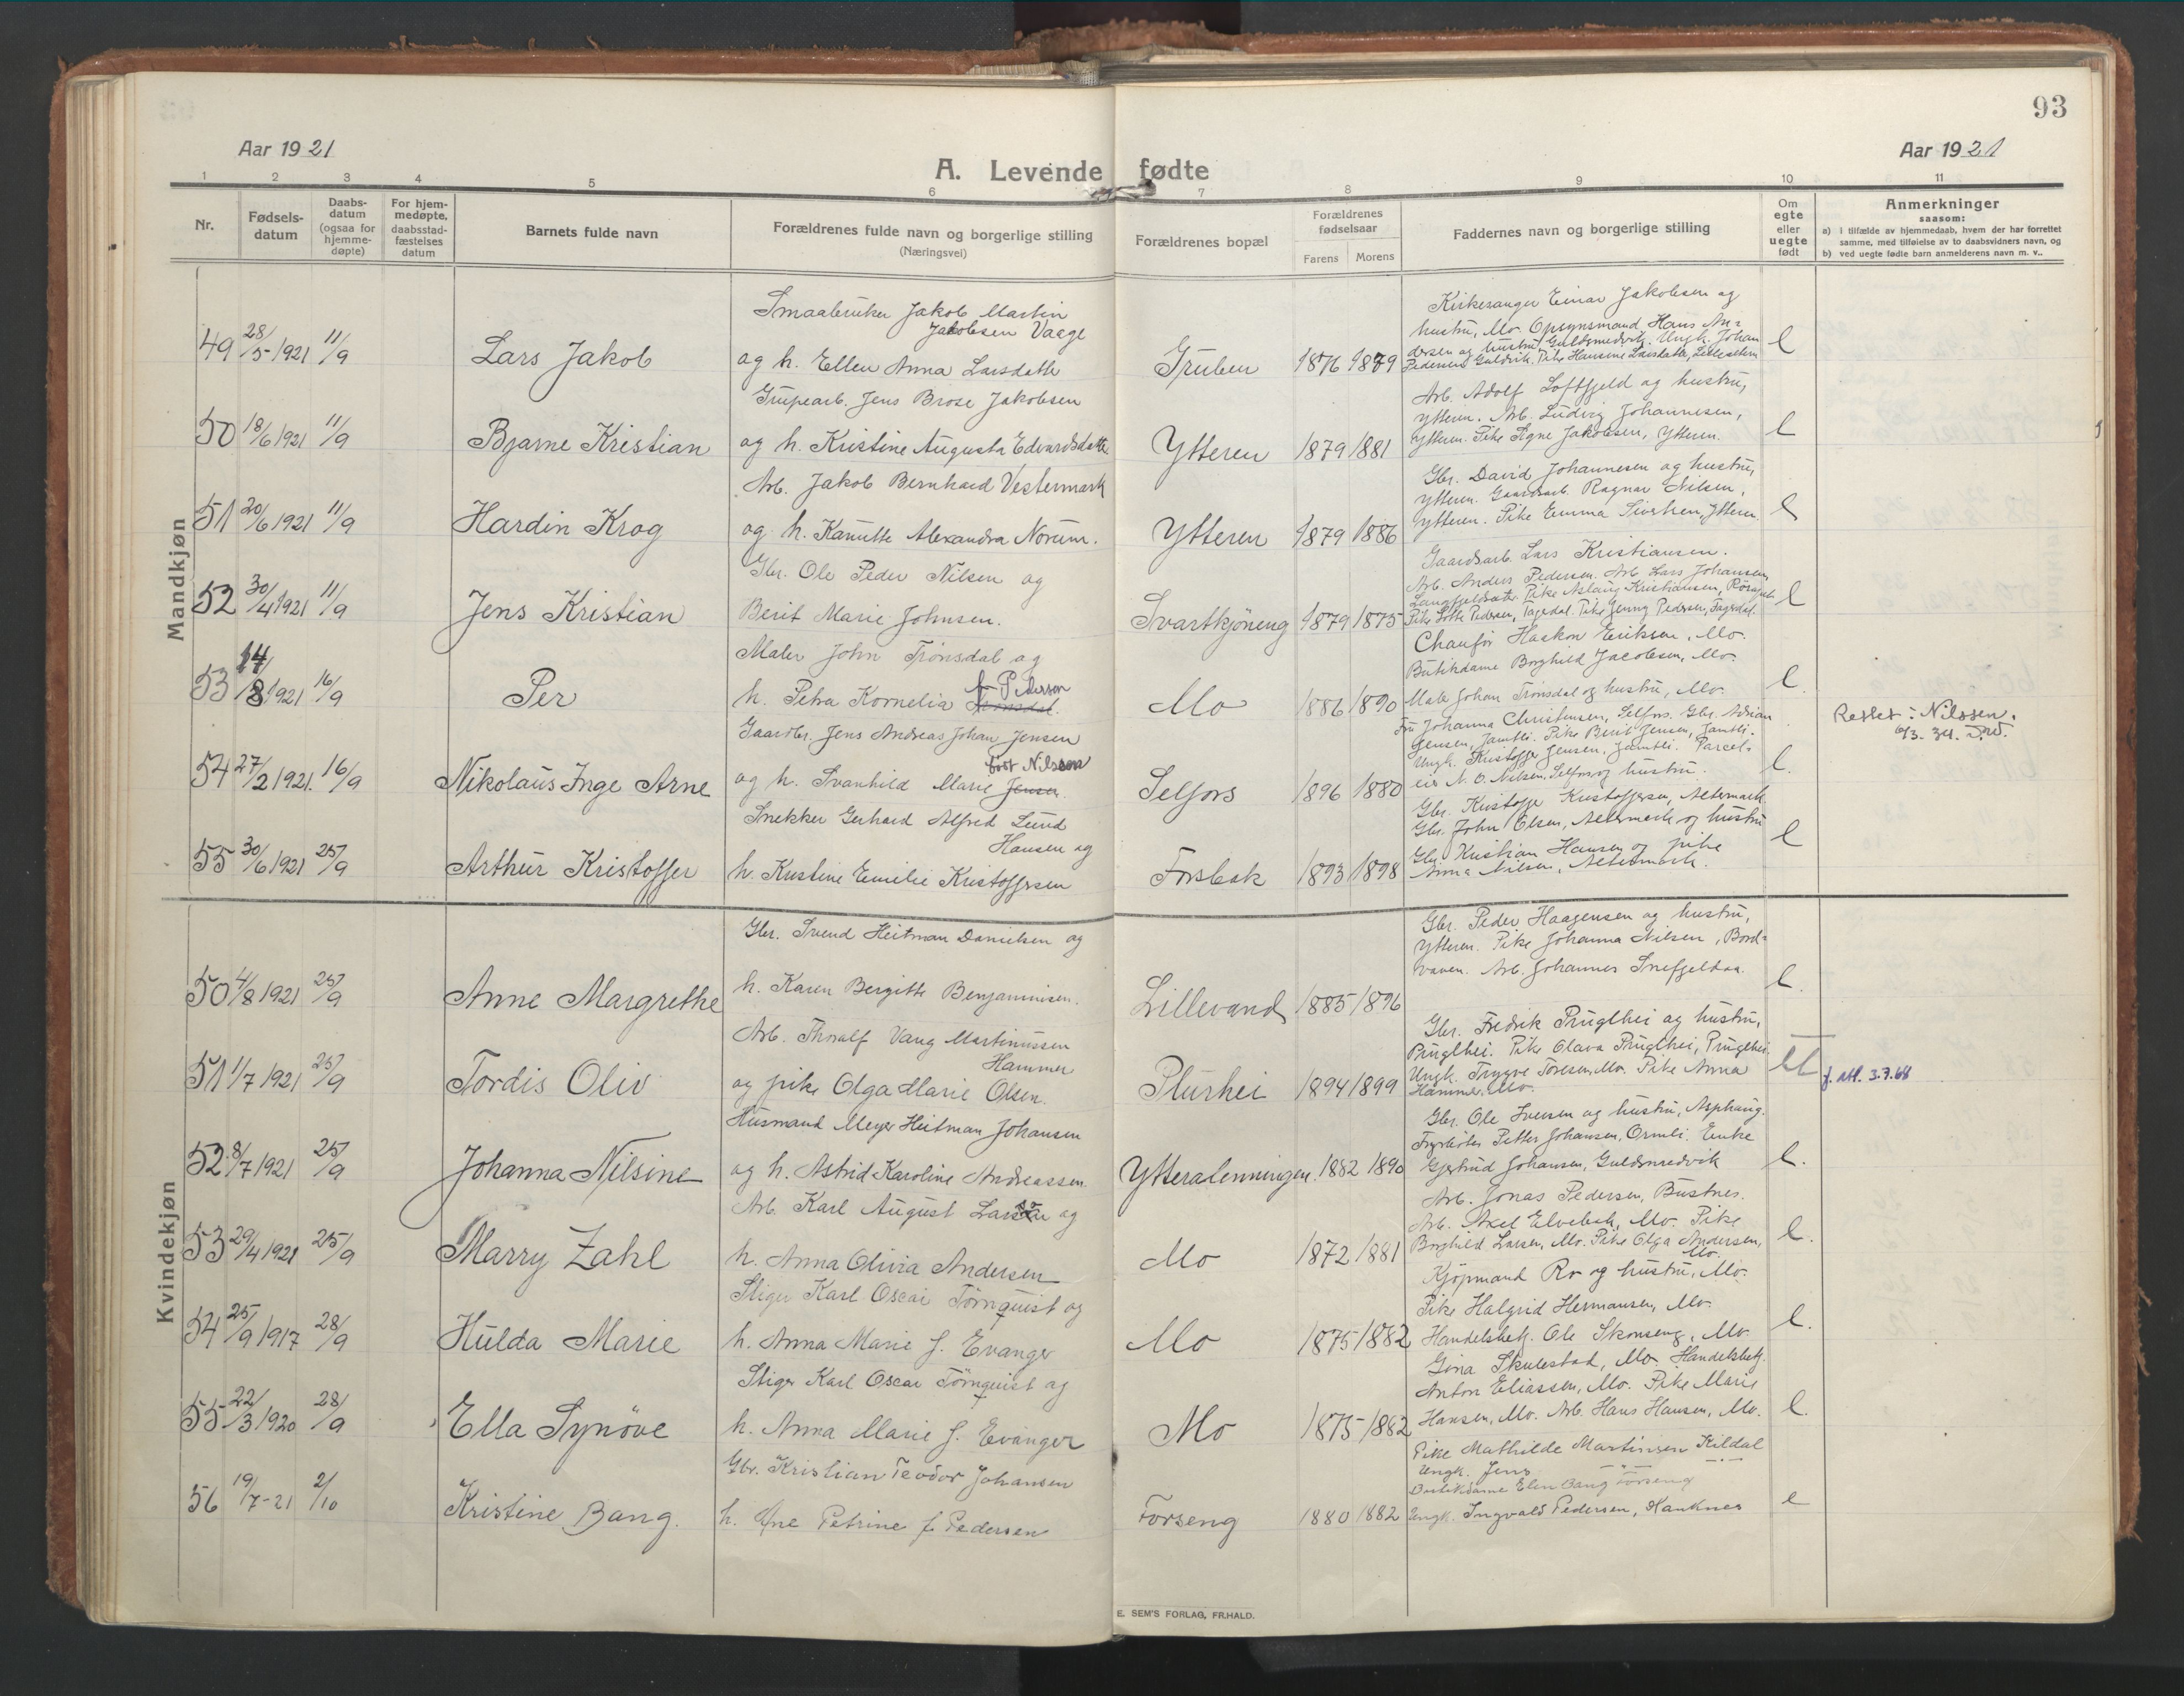 93
Aar 1921
Aar 1921
A. Levende fødte
1 2 3 4 5 6 7 8 9 10 11
Nr.
Fødsels-
datum
Daabs-
datum
(ogsaa for
hjemme-
døpte)
For hjem-
medøpte,
daabsstad-
fæstelses
datum
Barnets fulde navn
Forældrenes fulde navn og borgerlige stilling
(Næringsvei)
Forældrenes bopæl
Forældrenes
fødselsaar
Farens Morens
Faddernes navn og borgerlige stilling
Om
egte
eller
uegte
født
Anmerkninger
saasom:
a) i tilfælde av hjemmedaab, hvem der har forrettet
samme, med tilføielse av to daabsvidners navn, og
b) ved uegte fødte barn anmelderens navn m. v..
Mandkjøn
49 28/5-1921 11/9
Lars Jakob
Smaabruker Jakob Martin
Jakobsen Vaage
og h. Ellen Anna Larsdatter
Gruben 1876 1879
Kirkesanger Einar Jakobsen og
hustru, Mo. Opsynsmand Hans An-
dersen og hustru, Guldsmedvik. Ungk. Johan
Pedersen Guldvik. Pike Hansine Larsdatter,
e
50 18/6 1921 11/9
Bjarne Kristian
Grubearb. Jens Brose Jakobsen
og h. Kristine Augusta Edvardsdatter
Ytteren 1879 1881
Arb. Adolf Loftfjeld og hustru,
Ytteren. Arb. Ludvig Johannesen,
Ytteren. Pike Signe Jakobsen, Ytteren.
e
51 20/6 1921 11/9
Hardin Krog
Arb. Jakob Bernhard Vestermark
og h. Kanutte Alexandra Norum.
Ytteren 1879 1886
Gbr. David Johannesen og hustru,
Ytteren. Gaardsarb. Ragnar Nilsen,
Ytteren. Pike Emma Sivertsen, Ytteren.
e
52 30/4 1921 11/9
Jens Kristian
Gbr. Ole Peder Nilsen og
Berit Marie Johnsen.
Svartkjöneng 1879 1875
Gaardsarb. Lars Kristiansen.
Arb. Anders Pedersen. Arb. Lars Johansen,
Langfjeldsæter. Pike Aslaug Kristiansen,
Pike Lotte Pedersen, Fagerdal. Pike Jenny Pedersen, Fagerdal.
e
53 14/8 1921 16/9
Per
Maler John Trönsdal og
h. Petra Kornelia f. Pedersen
Mo 1886 1890
Chauffør Haakon Eriksen, Mo.
Butikdame Borghild Jacobsen, Mo.
Maler Johan Trönsdal og hustru, Mo.
e.
54 27/2 1921. 16/9
Nikolaus Inge Arne
Gaardbr. Jens Andreas Johan Jensen
og h. Svanhild Marie Jensen født Nilssen
Selfors 1896 1880
Fru Johanna Christensen, Selfors. Gbr. Adrian
Jensen, Jamtli. Pike Berit Jensen, Jamtli.
Ungk. Kristoffer Jensen, Jamtli. Parcel-
eier N. O. Nilsen, Selfors og hustru.
e.
Rettet: Nilssen.
6/3. 34.
55 30/6 1921 25/9
Arthur Kristoffer
Snekker Gerhard Alfred Lund
Hansen og
h. Kristine Emilie Kristoffersen
Forsbak 1893 1898
Gbr. Kristoffer Kristoffersen, Altermark.
Gbr. John Olsen, Altermark og hustru
Gbr. Kristian Hansen og pike
Anna Nilsen, Altermark.
e
Kvindekjøn
50 4/8 1921 25/9
Anne Margrethe
Gbr. Svend Heitman Danielsen og
h. Karen Bergitte Benjaminsen.
Lillevand 1885 1896
Gbr. Peder Haagensen og hustru,
Ytteren. Pike Johanna Nilsen, Bord-
vaven. Arb. Johannes Snefjeldaa.
e.
51 1/7 1921 25/9
Tordis Oliv
Arb. Thoralf Vang Martinussen
Hammer
og pike Olga Marie Olsen.
Plurhei 1894 1899
Gbr. Fredrik Pruglhei og hustru,
Pruglhei. Pike Olava Pruglhei, Pruglhei.
Ungk. Trygve Toresen, Mo. Pike Anna
Hammer, Mo.
f. att. 3.7.68
52 8/7 1921 25/9
Johanna Nilsine
Husmand Meyer Heitman Johansen
og h. Astrid Karoline Andreassen.
Ytteralenningen. 1882 1890
Gbr. Ole Iversen og hustru, Asphaug.
Petter Johansen, Ormli. Enke
Gjertrud Johansen, Guldsmedvik
e.
53 29/4 1921 25/9
Marry Zahl
Arb. Karl August Larsen og
h. Anna Olivia Andersen
Mo 1872 1881
Arb. Jonas Pedersen, Bustnes.
Arb. Axel Elvebak, Mo. Pike
Borghild Larsen, Mo. Pike Olga Andersen,
Mo.
e.
54 25/9 1917 28/9
Hulda Marie
Stiger Karl Oscar Törnquist og
h. Anna Marie f. Evanger
Mo 1875 1882
Kjöpmand Ro og hustru, Mo.
Pike Halgrid Hermansen, Mo.
Handelsbetj. Ole Skonseng, Mo.
e.
55 22/3 1920 28/9
Ella Synöve
Stiger Karl Oscar Törnquist og
h. Anna Marie f. Evanger
Mo 1875 1882
Gina Skulestad, Mo. Handelsbetj.
Anton Eliassen, Mo. Pike Marie
Hansen, Mo. Arb. Hans Hansen, Mo.
e.
56 19/7-21 2/10
Kristine Bang.
Gbr. Kristian Teodor Johansen
h. Ane Petrine f. Pedersen
Forseng 1880 1882
Pike Mathilde Martinsen Kildal
Ungk. Jens
Butikdame Elen Bang Forseng
Ungk. Ingvald Pedersen, Hauknes
e
E. SEM'S FORLAG, FR.HALD.